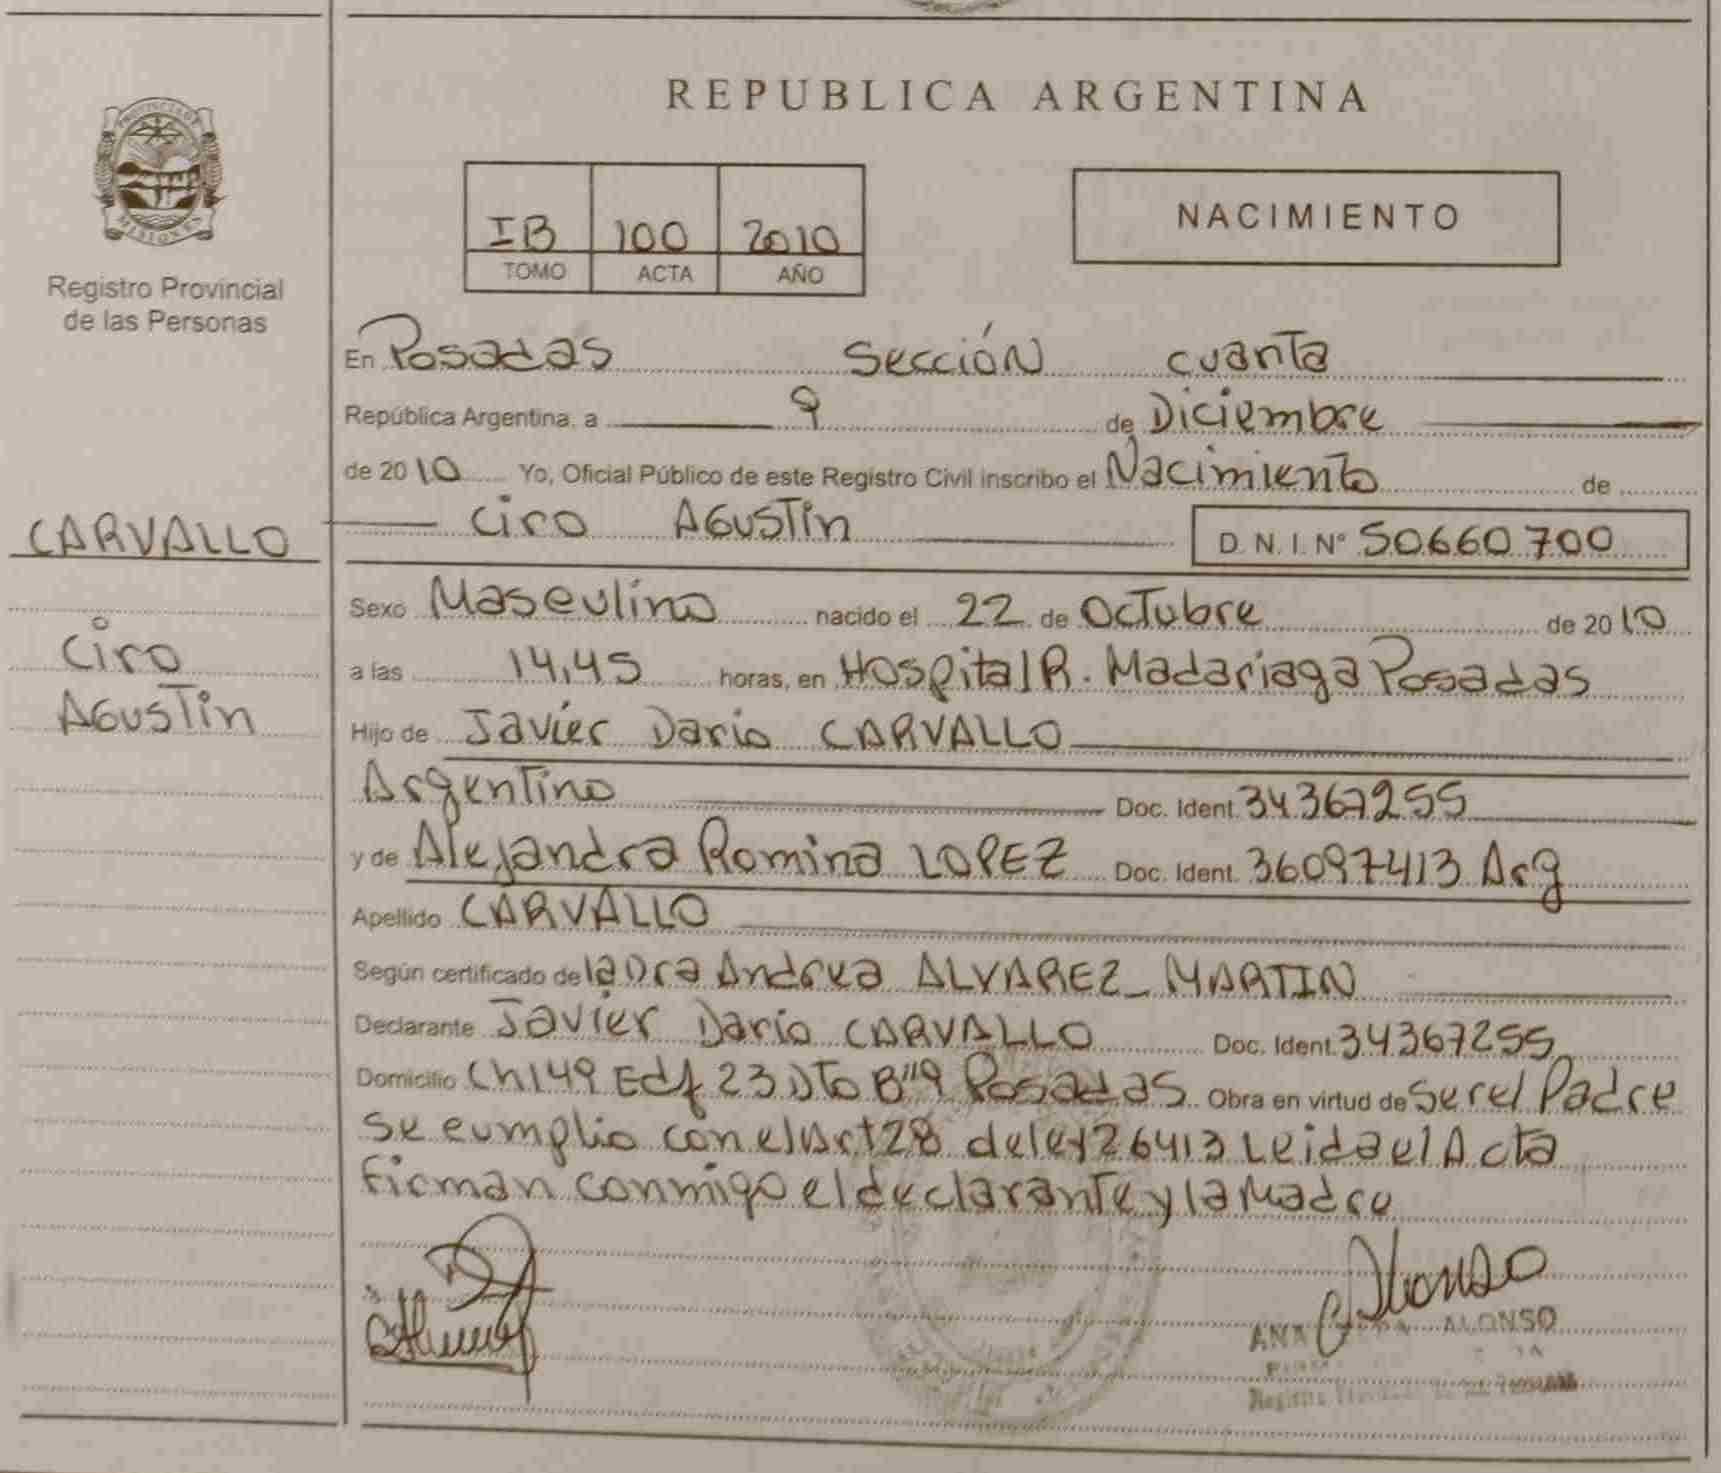 REPUBLICA ARGENTINA
PROVINCIA DE
MISIONES
Registro Provincial
de las Personas
IB 100 2010
TOMO ACTA AÑO
NACIMIENTO
En Posadas Sección cuarta
República Argentina, a 9 de Diciembre
de 2010 Yo, Oficial Público de este Registro Civil inscribo el Nacimiento de
Ciro Agustin D.N.I. N° 50660700
CARVALLO
Ciro
Agustin
Sexo Masculino nacido el 22 de Octubre de 2010
a las 14,45 horas, en Hospital R. Madariaga Posadas
Hijo de Javier Dario CARVALLO
Argentino Doc. Ident. 34367255
y de Alejandra Romina LOPEZ Doc. Ident. 36097413 Arg
Apellido CARVALLO
Según certificado de la Dra Andrea ALVAREZ_MARTIN
Declarante Javier Dario CARVALLO Doc. Ident. 34367255
Domicilio Ch149 Edf 23 Dto B"9 Posadas Obra en virtud de ser el Padre
se cumplio con el Art 28 de ley 26413 Leida el Acta
firman conmigo el declarante y la Madre
Alonso
ANA ALONSO
Registro